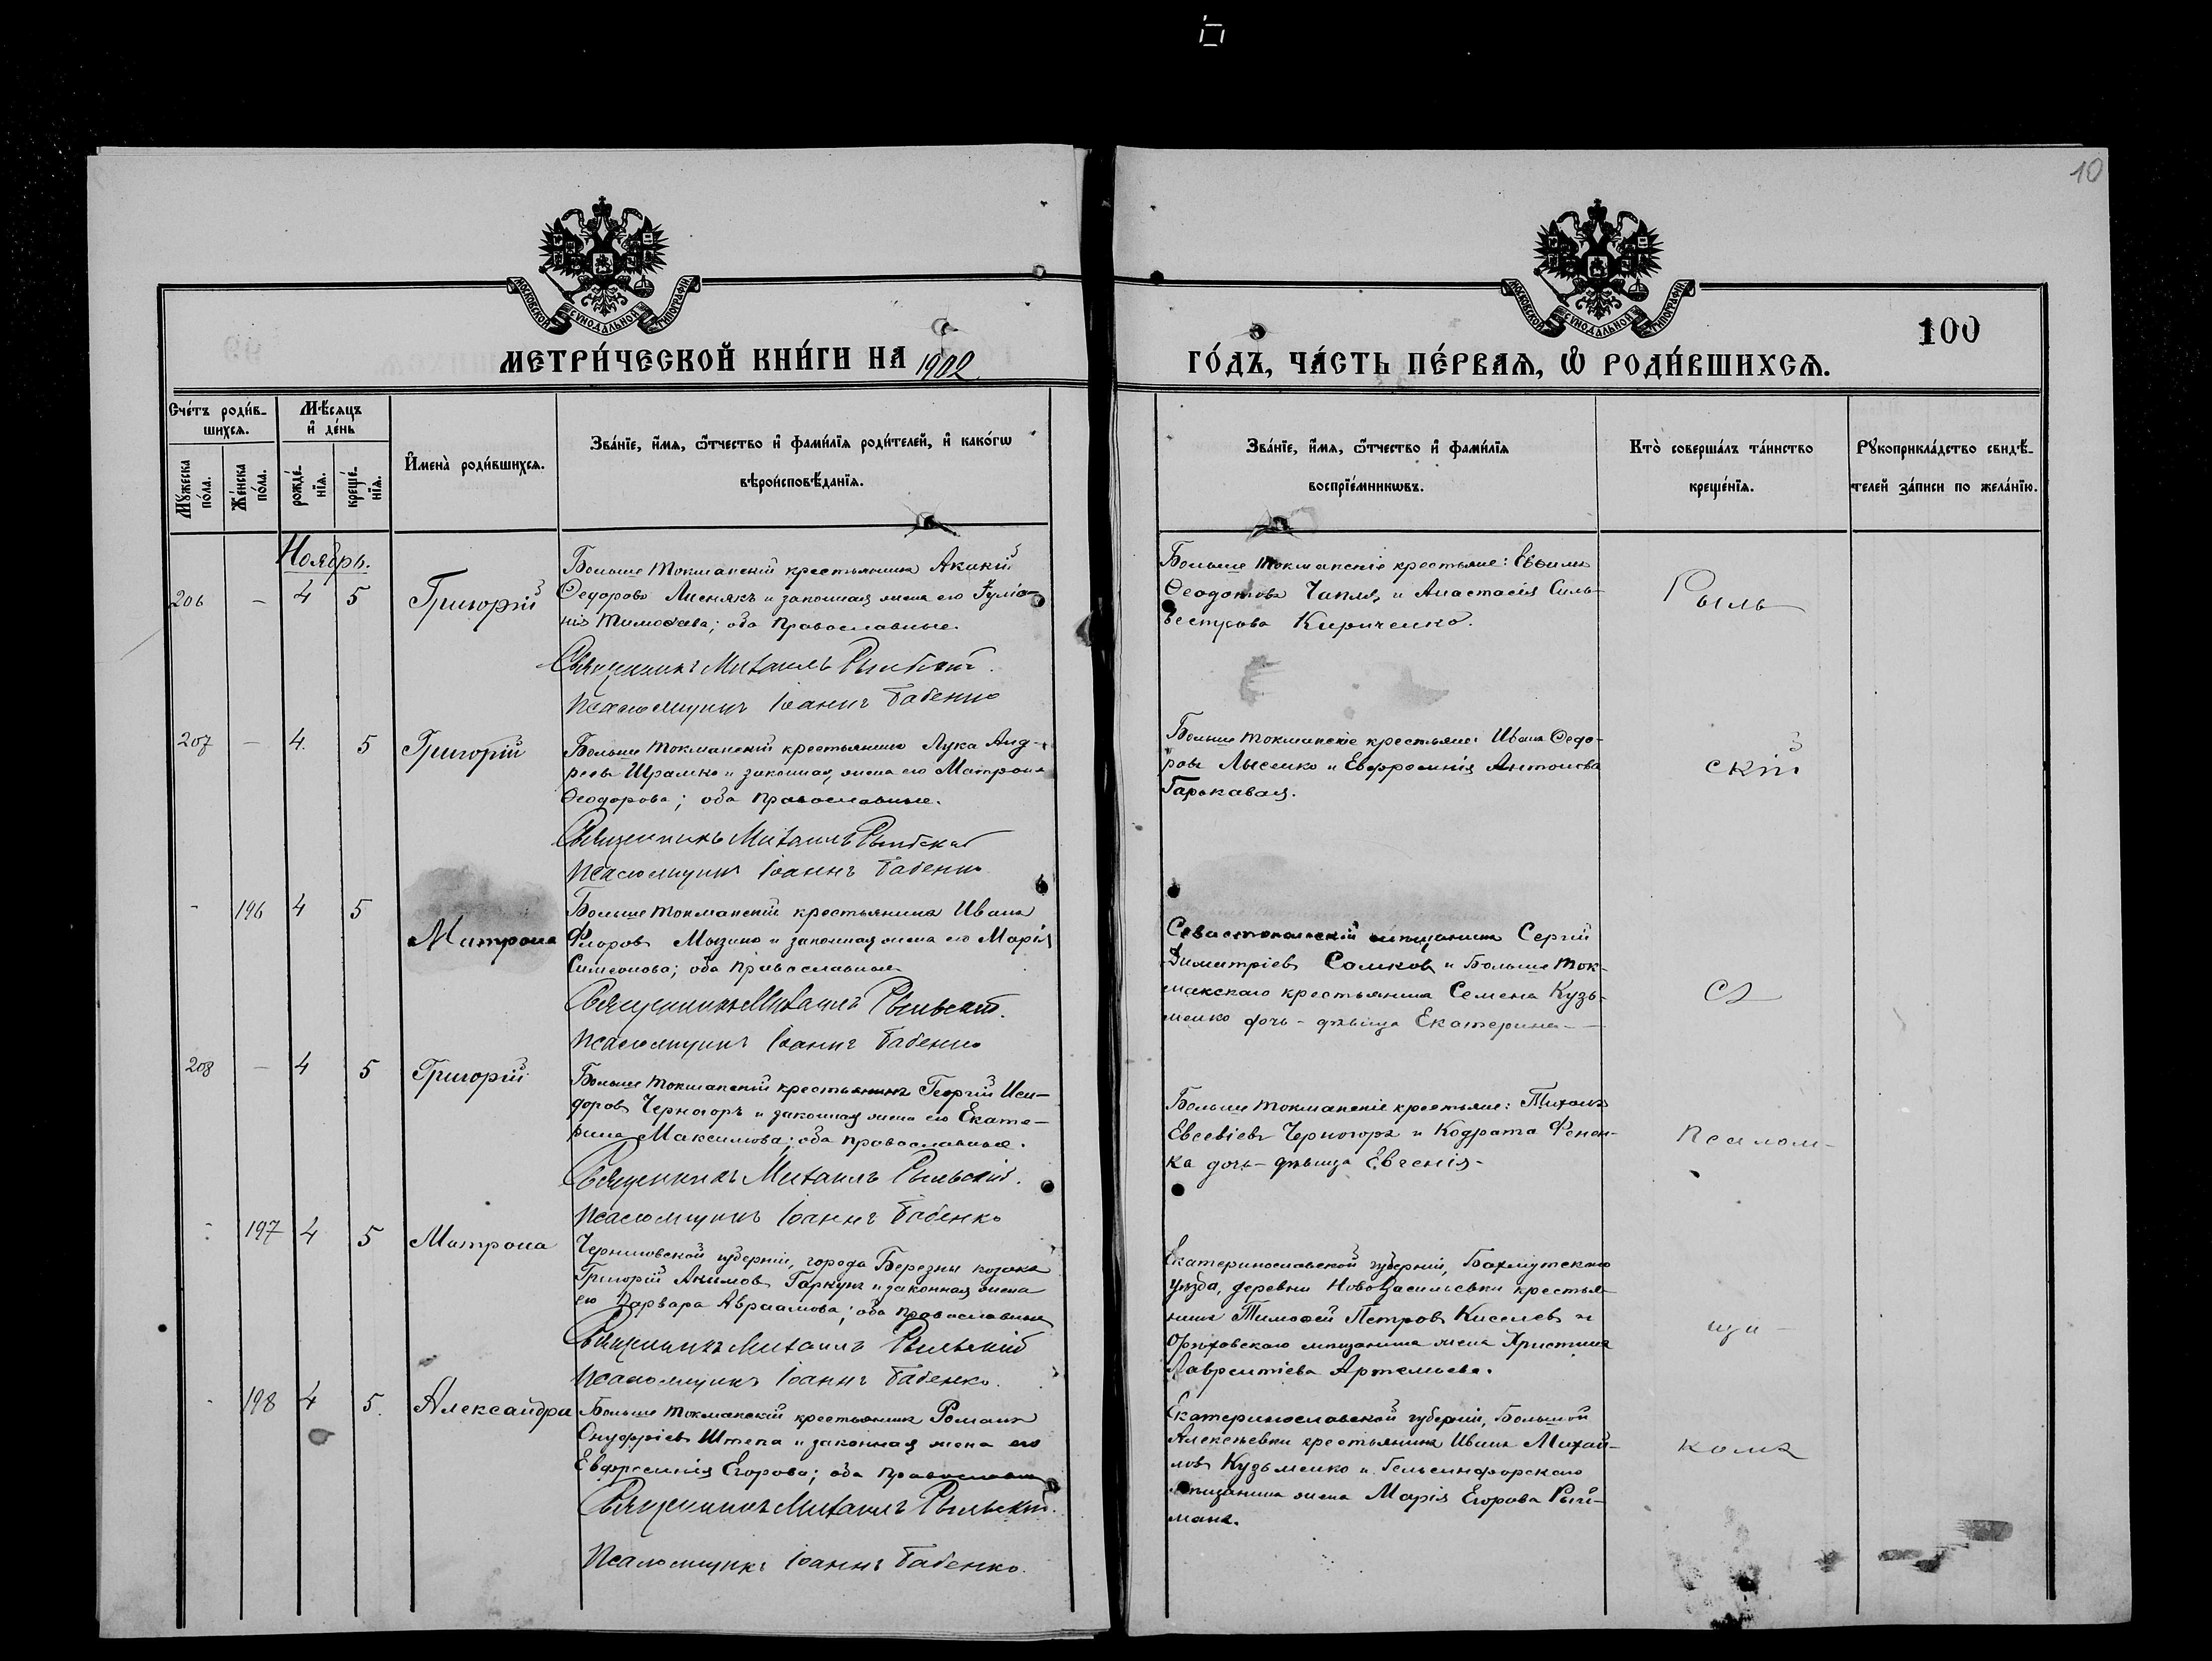 10
МОСКОВСКОЙ СѴНОДАЛЬНОЙ ТИПОГРАФІИ
МОСКОВСКОЙ СѴНОДАЛЬНОЙ ТИПОГРАФІИ
100
МЕТРИ́ЧЕСКОЙ КНИ́ГИ НА 1902
ГО́ДЪ, ЧА́СТЬ ПЕ́РВАѦ, Ѽ РОДИ́ВШИХСѦ.
Сче́тъ роди́в-
шихсѧ.
Мѣ́сяцъ
и҆ де́нь
Мꙋжеска по́ла.
Же́нска по́ла.
рожде́-
нїѧ.
креще́-
нїѧ.
И҆мена̀ роди́вшихсѧ.
Зва́нїе, и҆́мѧ, ѻ҆́тчество и҆ фами́лїѧ роди́телей, и҆ како́гѡ
вѣроисповѣ́данїѧ.
Зва́нїе, и҆́мѧ, ѻ҆́тчество и҆ фами́лїѧ
воспрїе́мникѡвъ.
Кто̀ соверша́лъ та́инство
креще́нїѧ.
Рꙋкоприкла́дство свидѣ́-
телей за́писи по жела́нїю.
Ноябрь.
206 - 4 5 Григорій
Больше Токмакскій крестьянинъ Акакій
Федоровъ Лиснякъ и законная жена его Іуліа-
нія Тимофеева; оба православные.
Священникъ Михаилъ Рыльскій.
Псаломщикъ Іоаннъ Бабенко
Больше Токмакскіе крестьяне: Евфимъ
Феодотовъ Чапля и Анастасія Силь-
вестрова Кириченко.
Рыль
207 - 4. 5 Григорій
Больше Токмакскій крестьянинъ Лука Анд-
реевъ Шрамко и законная жена его Матрона
Феодорова; оба православные.
Священникъ Михаилъ Рыльскій
Псаломщикъ Іоаннъ Бабенко
Больше Токмакскіе крестьяне: Иванъ Федо-
ровъ Лысенко и Евфросинія Антонова
Гарькавая.
скій
- 196 4 5 Матрона
Больше Токмакскій крестьянинъ Иванъ
Флоровъ и законная жена его Марія
Симеонова; оба православные
Священникъ Михаилъ Рыльскій.
Псаломщикъ Іоаннъ Бабенко
Севастопольскій мѣщанинъ Сергій
Димитріевъ Сомковъ и Больше Ток-
макскаго крестьянина Семена Кузь-
менко дочь - дѣвица Екатерина
съ
208 - 4 5 Григорій
Больше Токмакскій крестьянинъ Георгій Иси-
доровъ Черногоръ и законная жена его Екате-
рина Максимова; оба православные.
Священникъ Михаилъ Рыльскій.
Псаломщикъ Іоаннъ Бабенко
Больше Токмакскіе крестьяне: Тихонъ
Евсевіевъ Черногоръ и Кодрата Фенен-
ка дочь - дѣвица Евгенія.
псалом-
- 197 4 5 Матрона
Черниговской губерніи, города Березны козакъ
Григорій Акимовъ Гаркунъ и законная жена
его Варвара Авраамова; оба православные
Священникъ Михаилъ Рыльскій
Псаломщикъ Іоаннъ Бабенко.
Екатеринославской губерніи, Бахмутскаго
уѣзда, деревни НовоВасильевки крестья-
нинъ Тимофей Петровъ Киселевъ и
Орѣховскаго мѣщанина жена Христина
Лаврентіева Артемьева.
щи-
- 198 4 5. Александра
Больше Токмакскій крестьянинъ Романъ
Онуфріевъ Штепа и законная жена его
Евфросинія Егорова; оба православные
Священникъ Михаилъ Рыльскій.
Псаломщикъ Іоаннъ Бабенко.
Екатеринославской губерніи, Большой
Алексѣевки крестьянинъ Иванъ Михай-
ловъ Кузьменко и Гельсингфорскаго
мѣщанина жена Марія Егорова Рый-
манъ.
комъ